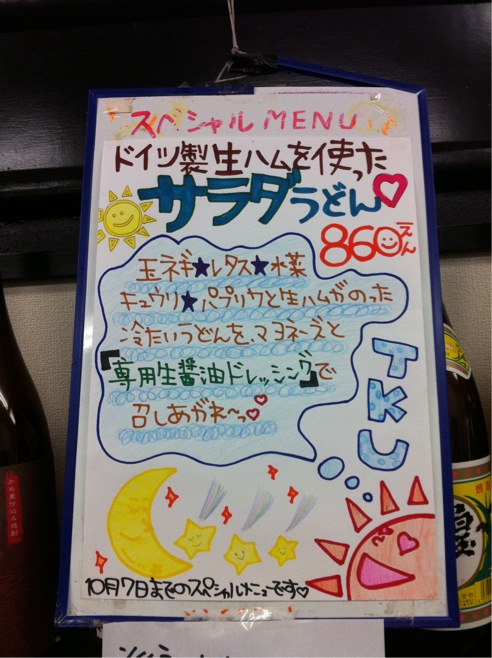 スペシャルMENU
ドイツ製生ハムを使った
サラダうどん♡
860えん
玉ネギ★レタス★水菜
キュウリ★パプリカと生ハムがのった
冷たいうどんを、マヨネーズと
『専用生醤油ドレッシング』で
召しあがれ〜っ♡
TKU
10月7日までのスペシャルメニューです♡
かめ壷仕込み焼酎